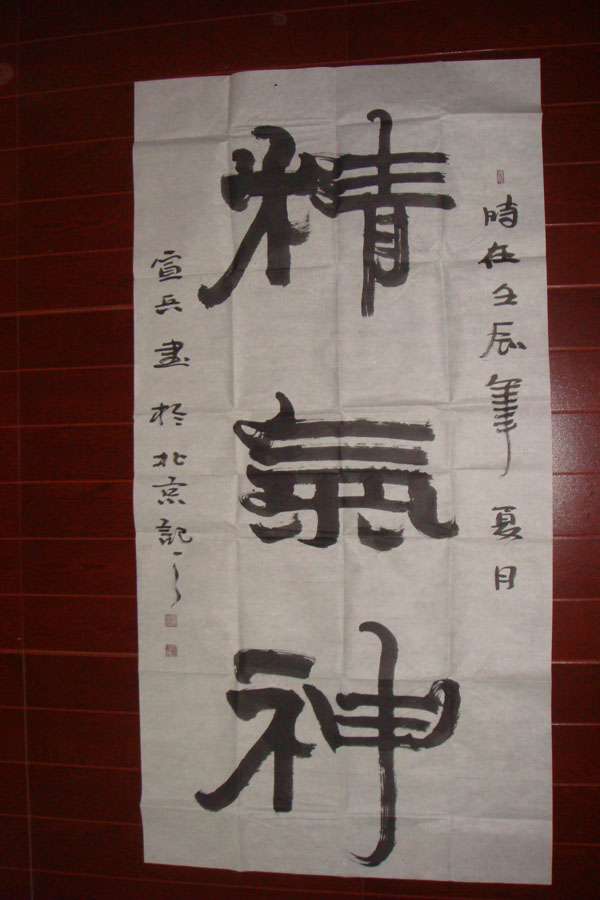 時在壬辰年夏月
精氣神
宣兵書於北京記之